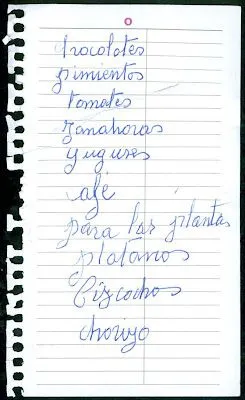 trocolotes
pimientos
tomates
zanahoras
yugures
cafe
para las plantas
platanos
bizcochos
chorizo